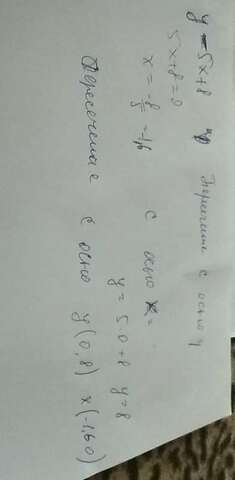 y = 5x+8 Пересечение с осью y
5x+8=0
x = -8/5 = -1,6
с осью x =
y = 5·0+8 y=8
Пересечение с осью y (0,8) x(-1,6 0)